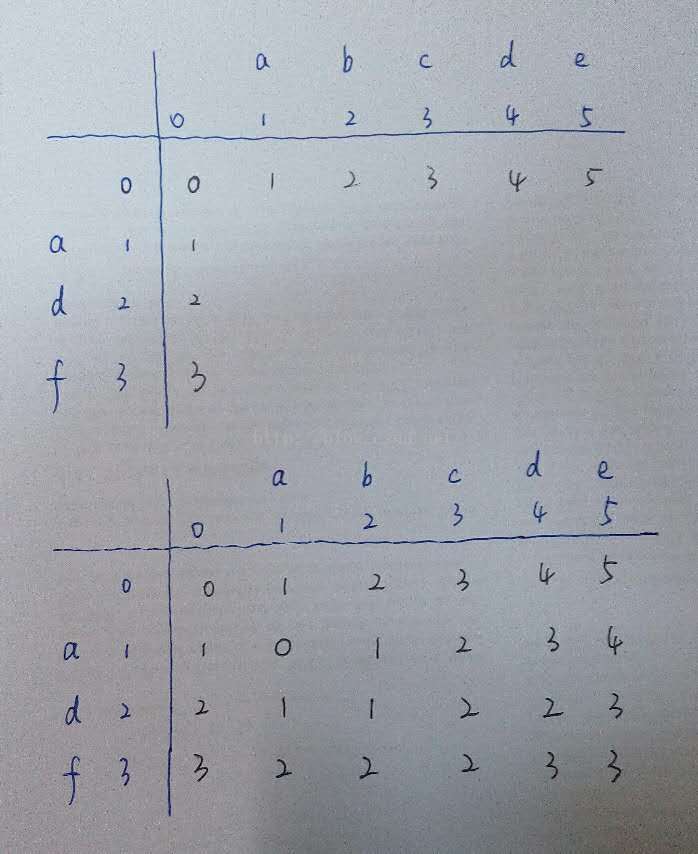 a b c d e
0 1 2 3 4 5
0 0 1 2 3 4 5
a 1 1
d 2 2
f 3 3
a b c d e
0 1 2 3 4 5
0 0 1 2 3 4 5
a 1 1 0 1 2 3 4
d 2 2 1 1 2 2 3
f 3 3 2 2 2 3 3